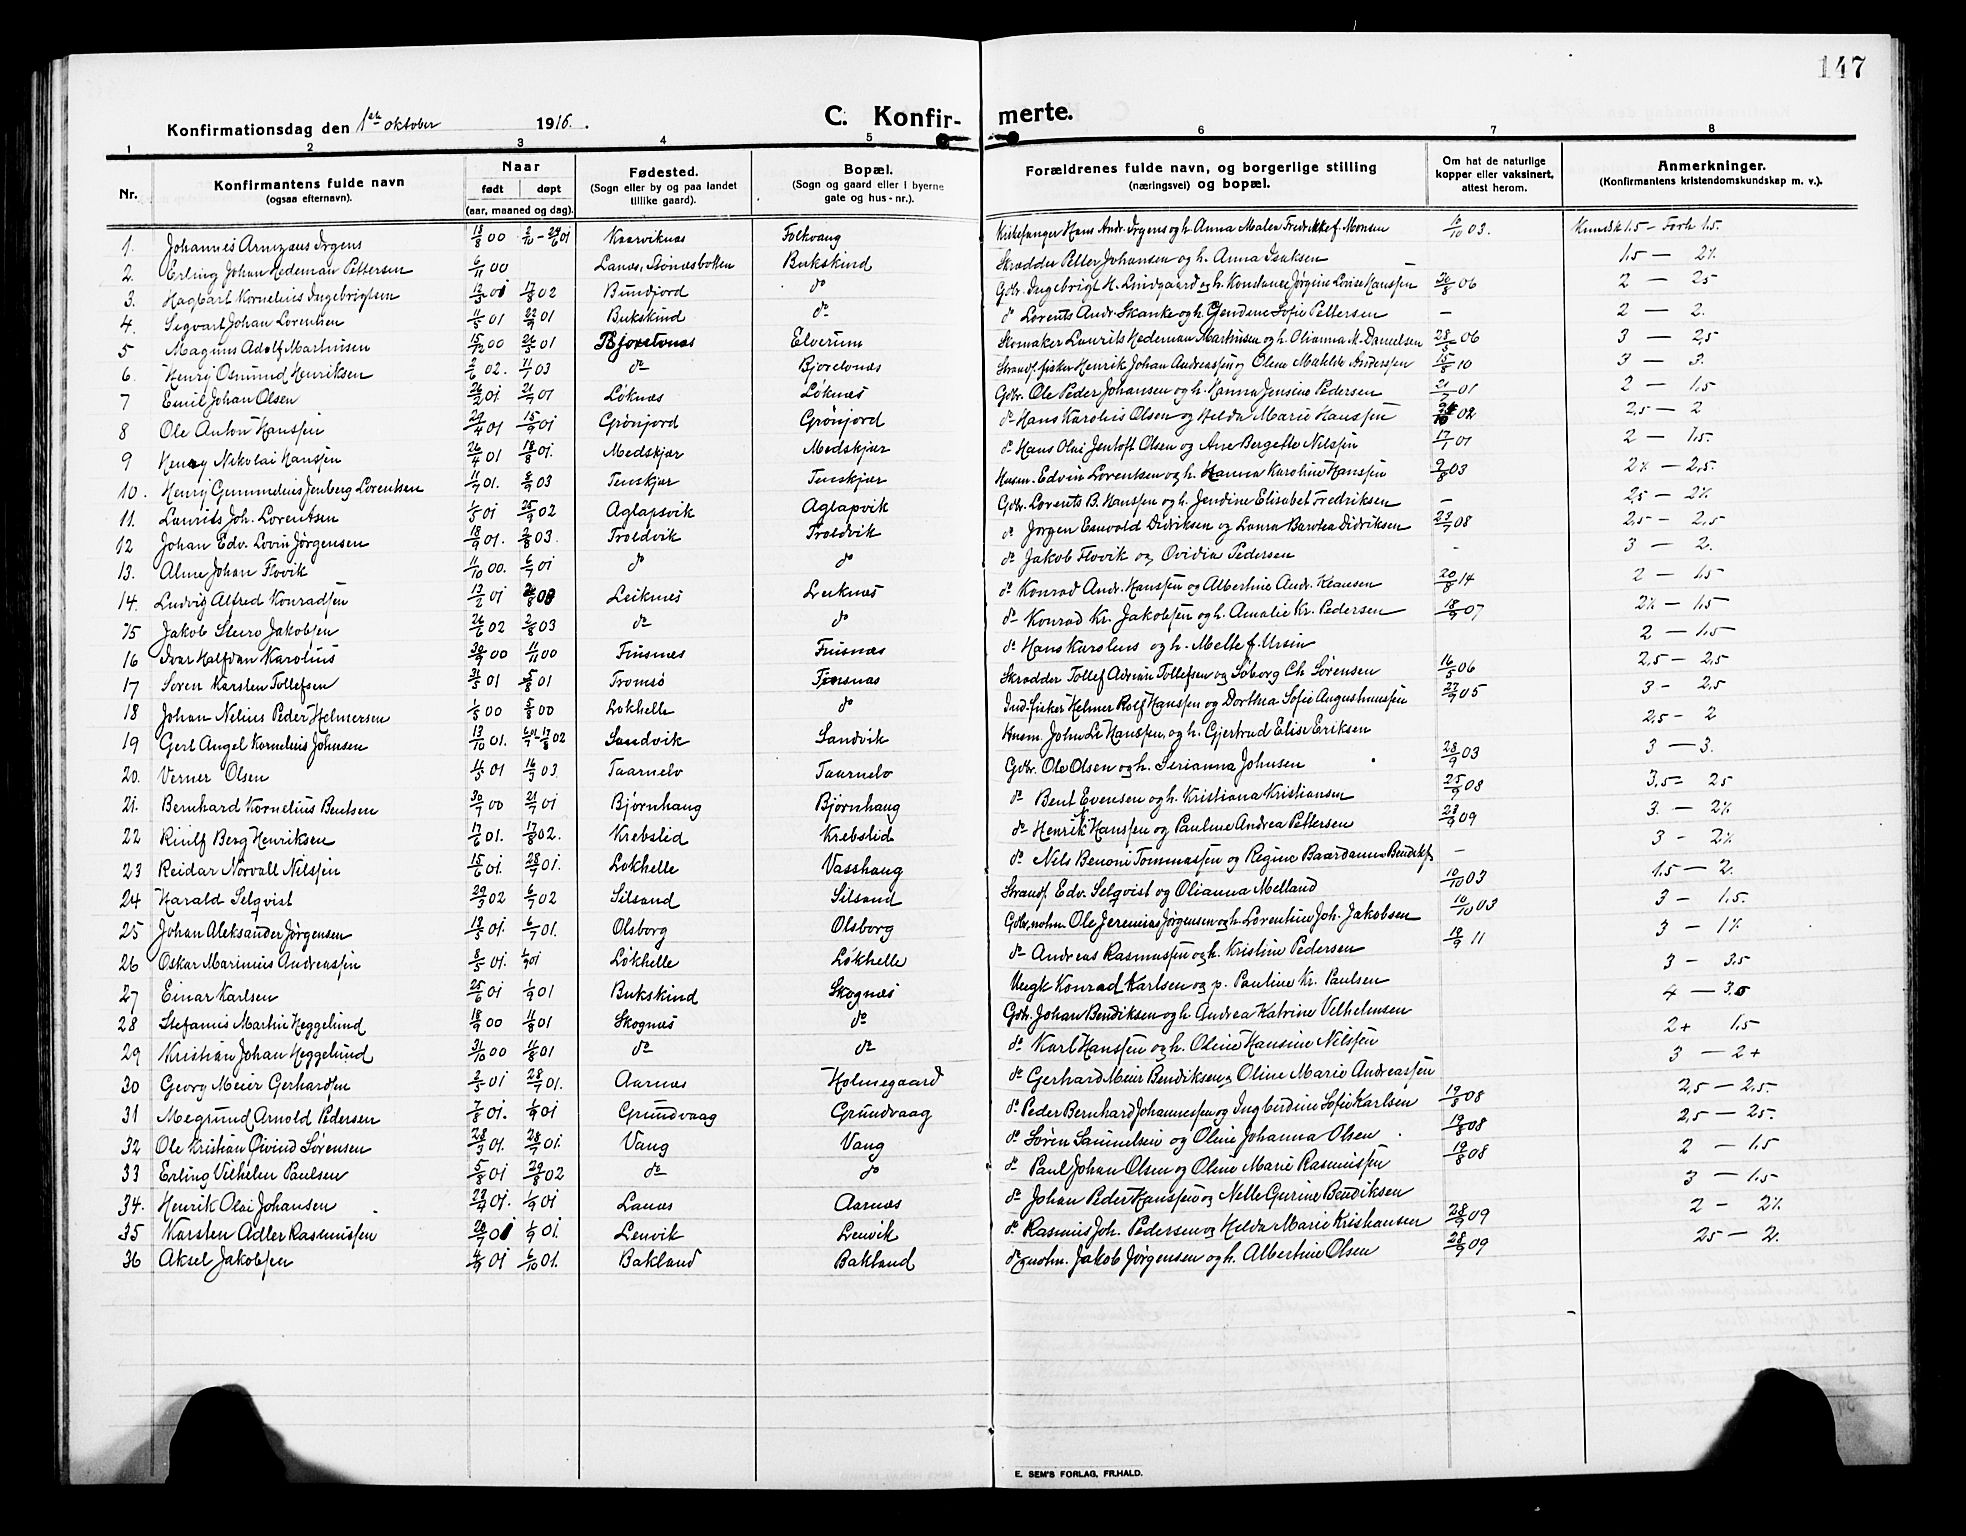 147
Konfirmationsdag den 1ste oktober 1916.
C. Konfir- merte.
1 2 3 4 5 6 7 8
Nr. Konfirmantens fulde navn (ogsaa efternavn). Naar født døpt (aar, maaned og dag). Fødested. (Sogn eller by og paa landet tillike gaard). Bopæl. (Sogn og gaard eller i byerne gate og hus-nr.). Forældrenes fulde navn, og borgerlige stilling (næringsvei) og bopæl. Om hat de naturlige kopper eller vaksinert, attest herom. Anmerkninger. (Konfirmantens kristendomskundskap m. v.).
1. Johannes Irgens 18/8 00 Kaarviknes Folkvang Hans Andr. Irgens og h. Anna Malen Fredrikke f. Monsen 10/10 03. Kundsk 1.5 - Forh 1.5.
2. Erling Johan Hedeman Pettersen 6/11 00 Lanes, Bukskind Skrædder Petter Johansen og h. Anna Isaksen 1.5 —
3. Hagbart Kornelius Ingebrigtsen 17/8 02 Bundjord do Gdbr. Ingebrigt H. Lindgaard og h. Konstanse Jørgine Lovise Hanssen 06 2 — 25
4. Sigvart Johan Lorentsen 11/5 01 22/9 01 Bukskind do do Lorents Andr. Skanke og h. Jendine Sofie Pettersen — 2 — 2.
5 Magnus Adolf Markusen 15/12 00 26/5 01 Bjorelvnes Elverum Skomaker Laurits Hedeman Markusen og h. Olianna M. Danielsen 28/5 06 3 — 2,5
6. Henry Osmund Henriksen 2/6 02. 11/7 03 do Bjorelvnes Strandf. fisker Henrik Johan Andreassen og Oline Matilde Andersen 15/8 10 3 — 3.
7 Emil Johan Olsen 26/2 01 21/7 01 Løknæs Løknæs Gdbr. Ole Peder Johansen og h. Hanna Jensine Pedersen 21/7 01 2 — 1.5
8 Ole Anton Hanssen 29/4 01 15/9 01 Grønjord Grønjord do Hans Karolius Olsen og Helda Marie Hanssen 02 2,5 — 2
9 Henry Nikolai Hanssen 26/4 01 18/8 01. Medskjær Medskjær do Hans Olai Jentoft Olsen og Ane Bergette Nilssen 17/1 01 2 — 1.5.
10. Henry Gunnelius Jenberg Lorentsen 11/7 01. 6/9 03 Tenskjær Tenskjær Husm. Edvin Lorentsen og h. Hanna Karoline Hanssen 9/8 03 — 2,5.
11. Laurits Joh. Lorentsen 1/5 01 25/9 02 Aglapsvik Aglapvik Gdbr. Lorents B. Hanssen og h. Jendine Elisabet Fredriksen — 25 —
12 Johan Edv. Lovin Jørgensen 18/9 01. 2/8 03. Troldvik Troldvik do Jørgen Didriksen og Laura Didriksen 23/7 08 2,5 — 2,5
13. Alme Johan Flovik 11/10 00. 6/7 01 do do do Jakob Flovik og Ovidia Pedersen - 3 — 2.
14. Ludvig Alfred Konradsen 13/2 01 Leiknes Leiknes do Konrad Andr. Hanssen og Albertine Andr. Klausen 20/8 14 2 — 1.5
15 Jakob Sturo Jakobsen 26/6 02 2/8 03 do do do Konrad Kr. Jakobsen og h. Amalie Kr. Pedersen 18/9 07 — 1.5
16 Ivar Halfdan Karolius 30/9 00 11/11 00 Finsnes Finsnæs do Hans Karolius og h. Mette f. Ursin 2 — 1.5
17 Søren Karsten Tollefsen 31/5 01 5/8 01 Tromsø Finsnæs Skrædder Tollef Adrian Tollefsen og Søborg Ch. Sørensen 16/5 06 2,5 — 2,5
18 Johan Nelius Peder Helmersen 1/5 00 5/8 00 Lokhelle do Ind. fisker Helmer Rolf Hanssen og Dorthea Sofie Augustinussen 05 3 - 2,5
19 Gert Angel Kornelius Johnsen 13/10 01. Sandvik Sandvik Husm. John Le Hanssen, og h. Gjertrud Elise Eriksen 2,5 - 2
20. Verner Olsen 11/5 01 16/3 03. Taarnelv Taarnelv Gdbr. Ole Olsen og h. Serianna Johnsen 28/9 03 3 — 3.
21. Bernhard Kornelius Bentsen 30/7 00 21/7 01 Bjørnhaug Bjørnhaug do Bent Evensen og h. Kristiana Kristiansen 25/9 08 3,5 = 25
22 Riulf Berg Henriksen 17/6 01. 17/8 02. Krebslid Krebslid do Henrik Hanssen og Pauline Andrea Pettersen 23/9 09 3. —
23 Reidar Norvall Nilssen 15/6 01. 28/7 01. Lokhelle Vasshaug do Nils Benoni Tommassen og Regine Baardanna Bendiks — 3 -
24 Harald Selqvist 29/3 02 6/7 02 Silsand Silsand Strandf. Edv. Selqvist og Olianna Melland 10/10 03 1.5 — 2.
25 Johan Aleksander Jørgensen 13/5 01. 6/7 01. Olsborg Olsborg Gdbr. nohm. Ole Jeremias Jørgensen og h. Lorentine Joh. Jakobsen 10/10 03 3 - 1.5.
26 Oskar Marinius Andreassen 8/5 01. 1/9 01 Lokhelle Lokhelle do Andreas Rasmussen og h. Kristine Pedersen 19/9 11 3 —
27 Einar Karlsen 25/6 01 1/9 01 Bukskind Skognæs Ungk Konrad Karlsen og p. Pauline Kr. Paulsen 3 - 3.5
28 Stefanus Martin Heggelund 18/9 00 11/8 01 Skognæs do Gdbr. Johan Bendiksen og h Andrea Katrine Vilhelmsen 4 — 3.5
29 Kristian Johan Heggelund 31/10 00 11/8 01 do do do Karl Hanssen og h. Oline Hansine Nilssen 2+ 1.5
30 Georg Meier Gerhardsen 2/5 01 28/7 01. Aarnæs Holmegaard do Gerhard Meier Bendiksen og Oline Marie Andreassen 3 — 2+
31 Megrund Arnold Pedersen 7/8 01. 1/9 01 Grundvaag Grundvaag do Peder Bernhard Johannessen og Ingberdine Sofie Karlsen 19/8 08 2,5 — 2,5
32 Ole Kristian Øivind Sørensen 28/3 01. 28/7 01. Vang Vang do Søren Samuelsen og Oline Johanna Olsen 19/8 08 2,5 — 25.
33 Erling Vilhelm Paulsen 5/8 01 29/8 02 do do do Paul Johan Olsen og Oline Marie Rasmussen 19/8 08 2 — 1.5
34. Henrik Olai Johansen 01. 1/9 01 Lanæs Aarnæs do Johan Peder Hanssen og Nelle Gurine Bendiksen 3 — 1.5
35 Karsten Adler Rasmussen 01 1/9 01. Lenvik Lenvik do Rasmus Joh. Pedersen og Helda Marie Kristiansen 28/9 09 2 -
36 Aksel Jakobsen 4/9 01 6/10 01. Bakland Bakland do nohm. Jakob Jørgensen og h. Albertine Olsen 28/9 09 25 — 2.
E. SEM'S FORLAG, FR.HALD.